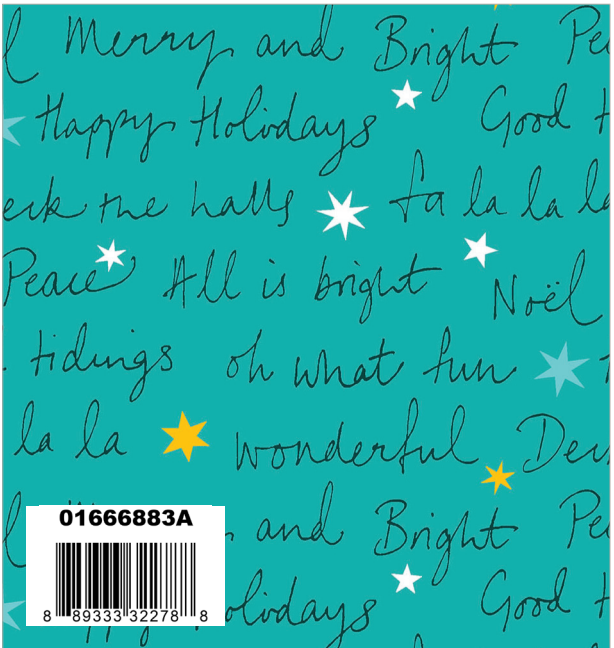 Merry and Bright Pe
Happy Holidays Good
eck the halls fa la la la
Peace All is bright Noël
tidings oh what fun
la la wonderful De
and Bright Pe
01666883A
olidays Good
8 89333 32278 8